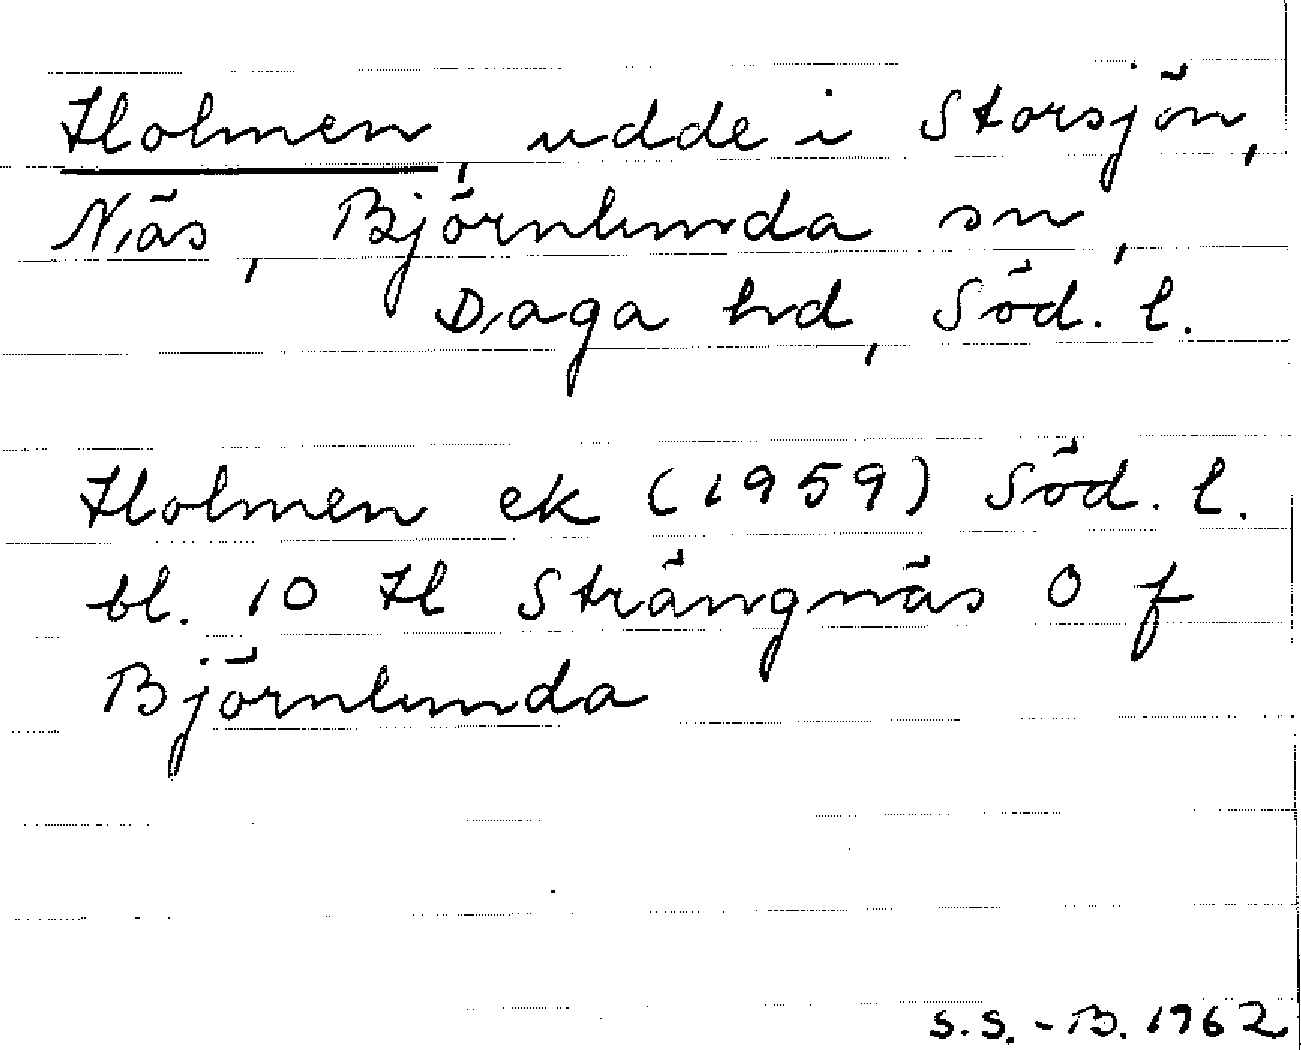 Holmen, udde i Storsjön,
Näs, Björnlunda sn,
Daga hd, Söd. l.
Holmen ek (1959) Söd. l.
bl. 10 H Strängnäs O f
Björnlunda
S.S.-B. 1962